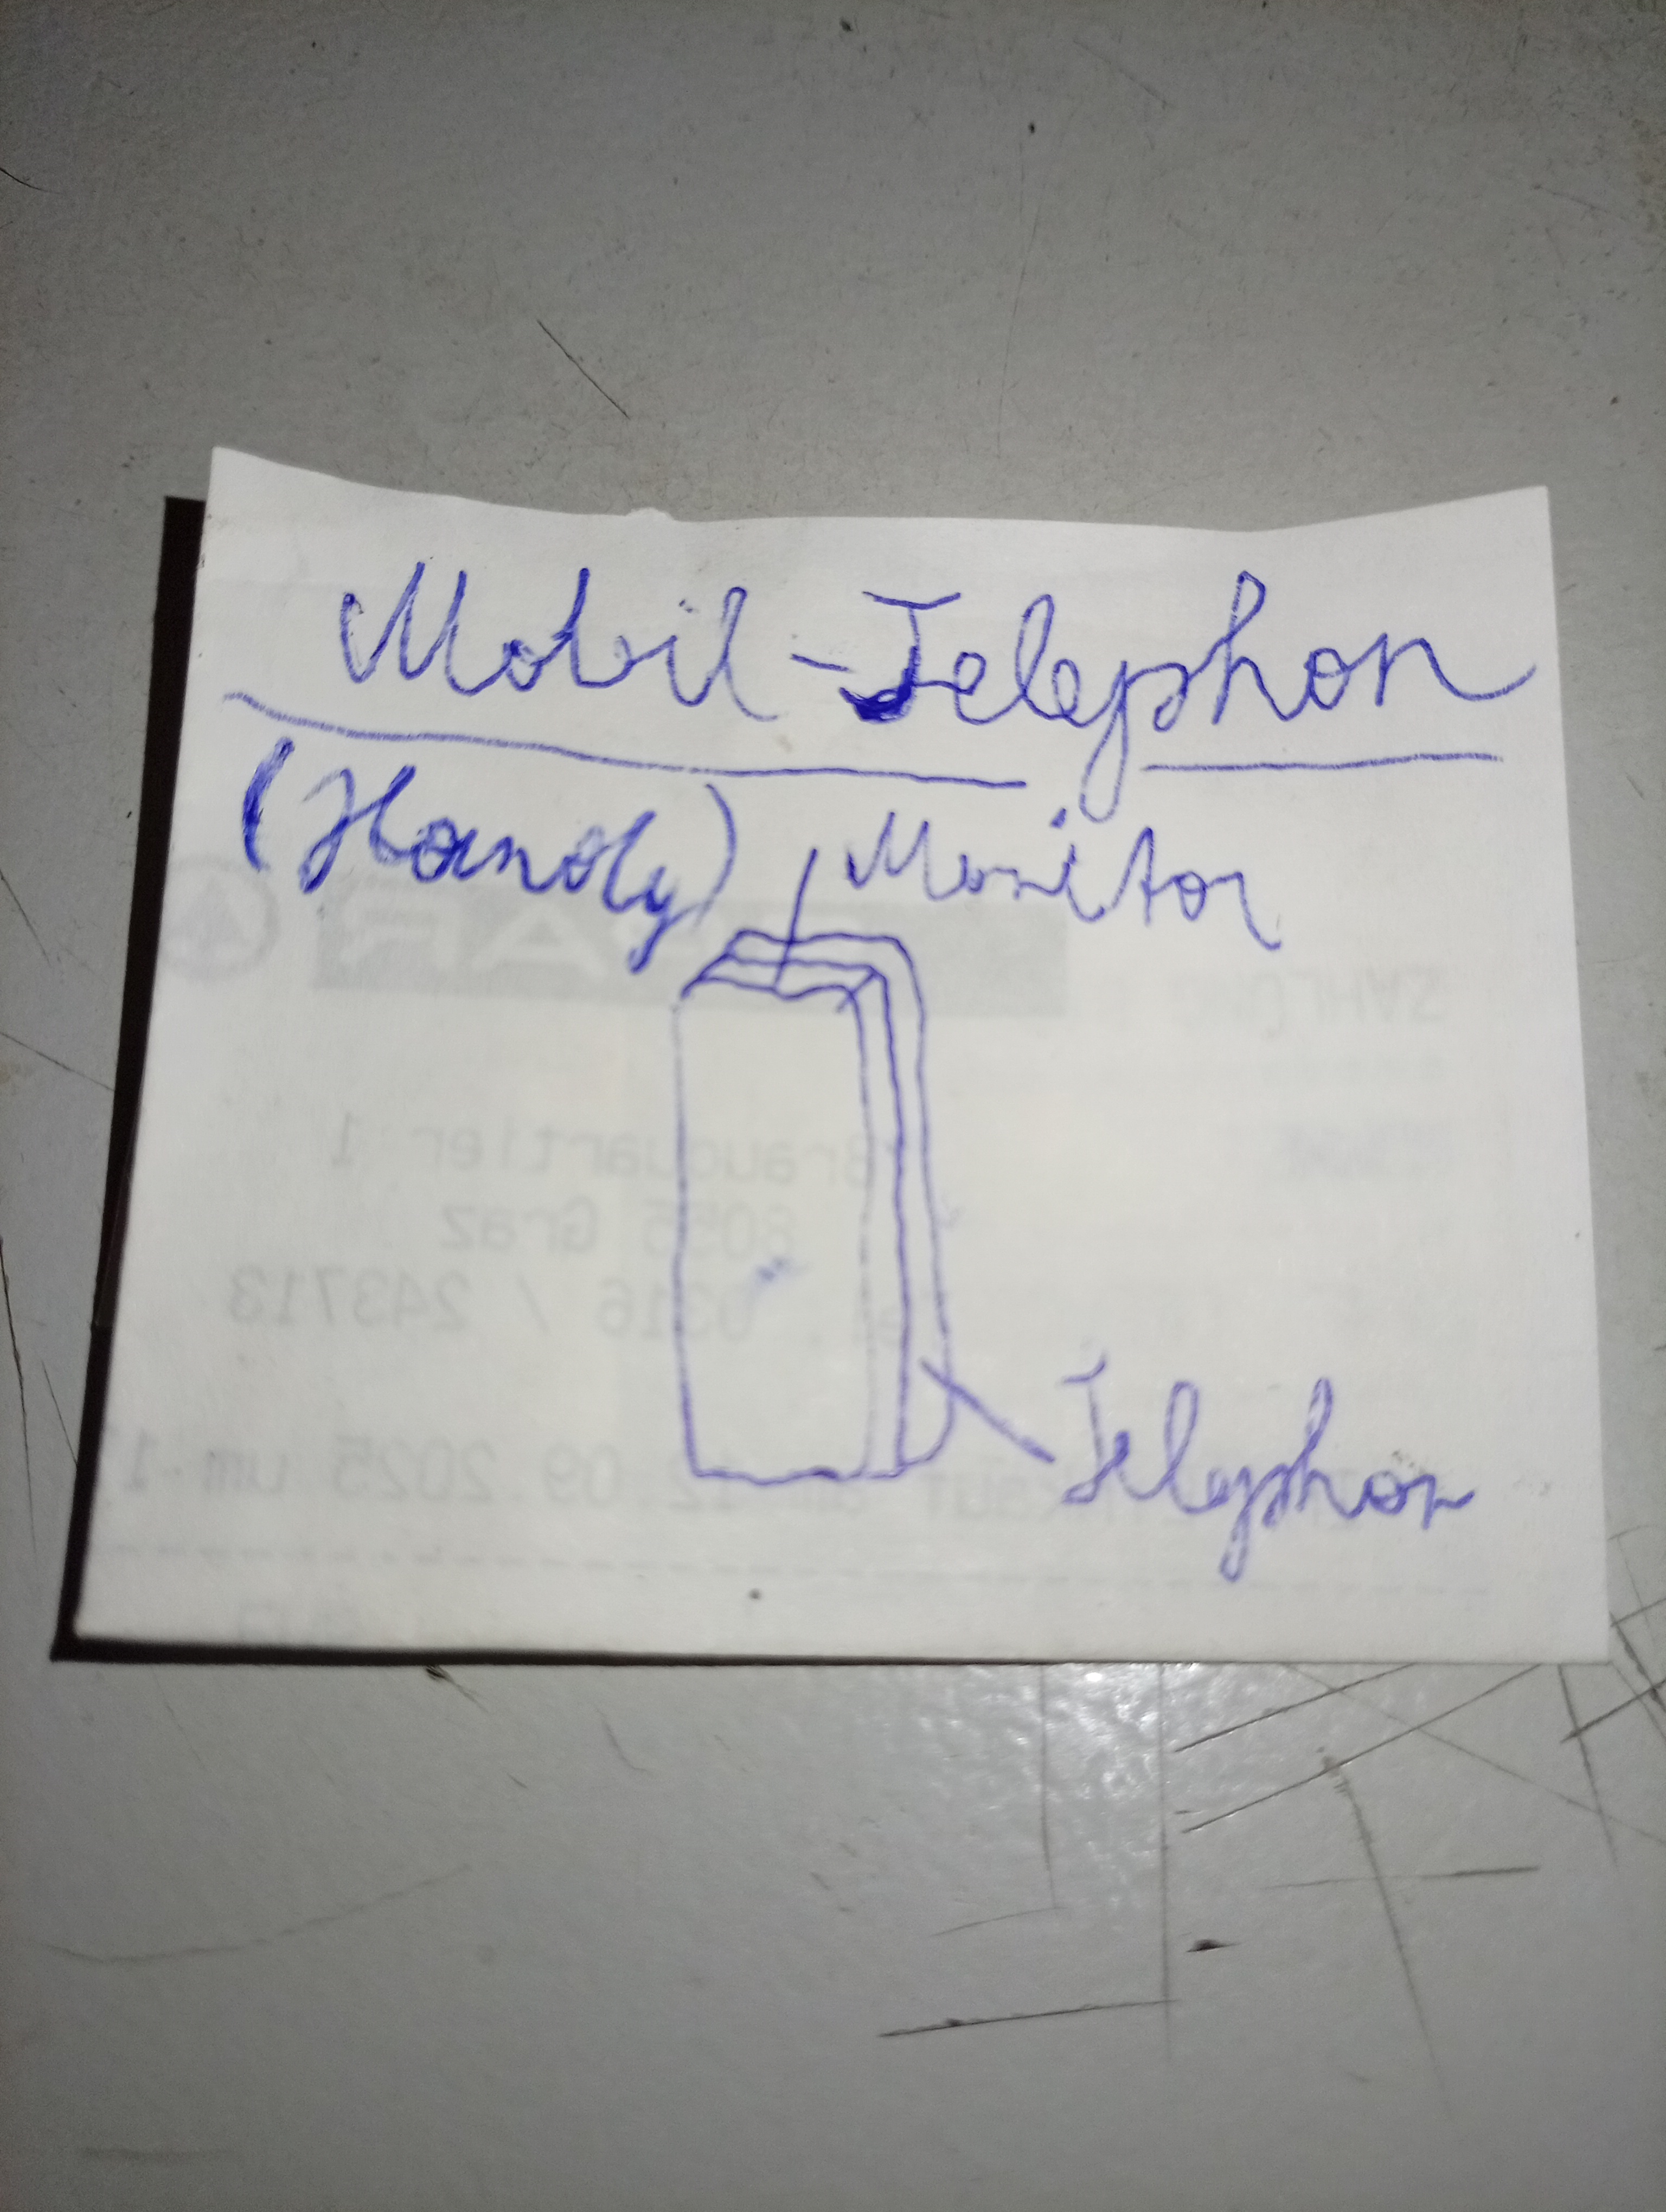 Mobil-Telephon
(Handy)
Monitor
Telephon
Brauquartier 1
8055 Graz
0316 / 243713
12.09.2025 um